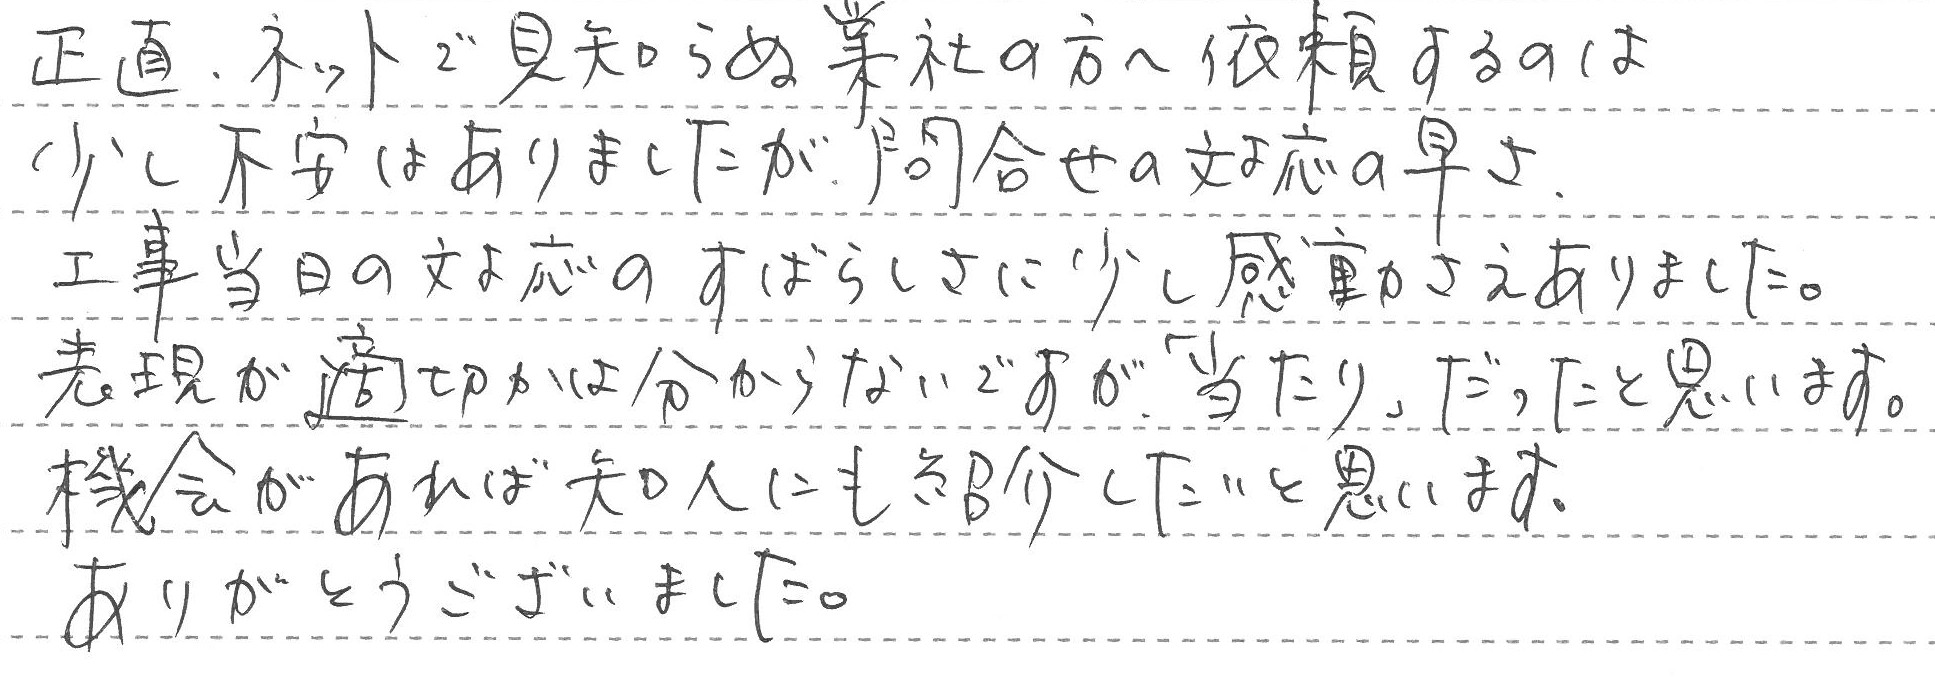 正直、ネットで見知らぬ業社の方へ依頼するのは
少し不安はありましたが、問合せの対応の早さ、
工事当日の対応のすばらしさに少し感動さえありました。
表現が適切かは分からないですが、「当たり」だったと思います。
機会があれば知人にも紹介したいと思います。
ありがとうございました。